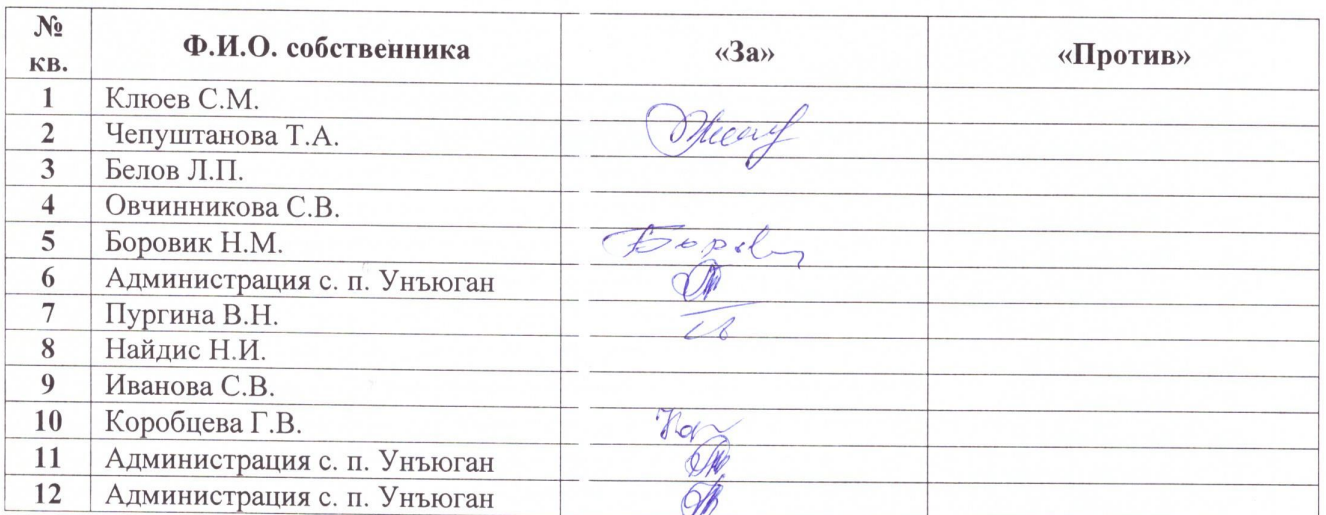 № кв. Ф.И.О. собственника «За» «Против»
1 Клюев С.М.
2 Чепуштанова Т.А.
3 Белов Л.П.
4 Овчинникова С.В.
5 Боровик Н.М.
6 Администрация с. п. Унъюган
7 Пургина В.Н.
8 Найдис Н.И.
9 Иванова С.В.
10 Коробцева Г.В.
11 Администрация с. п. Унъюган
12 Администрация с. п. Унъюган